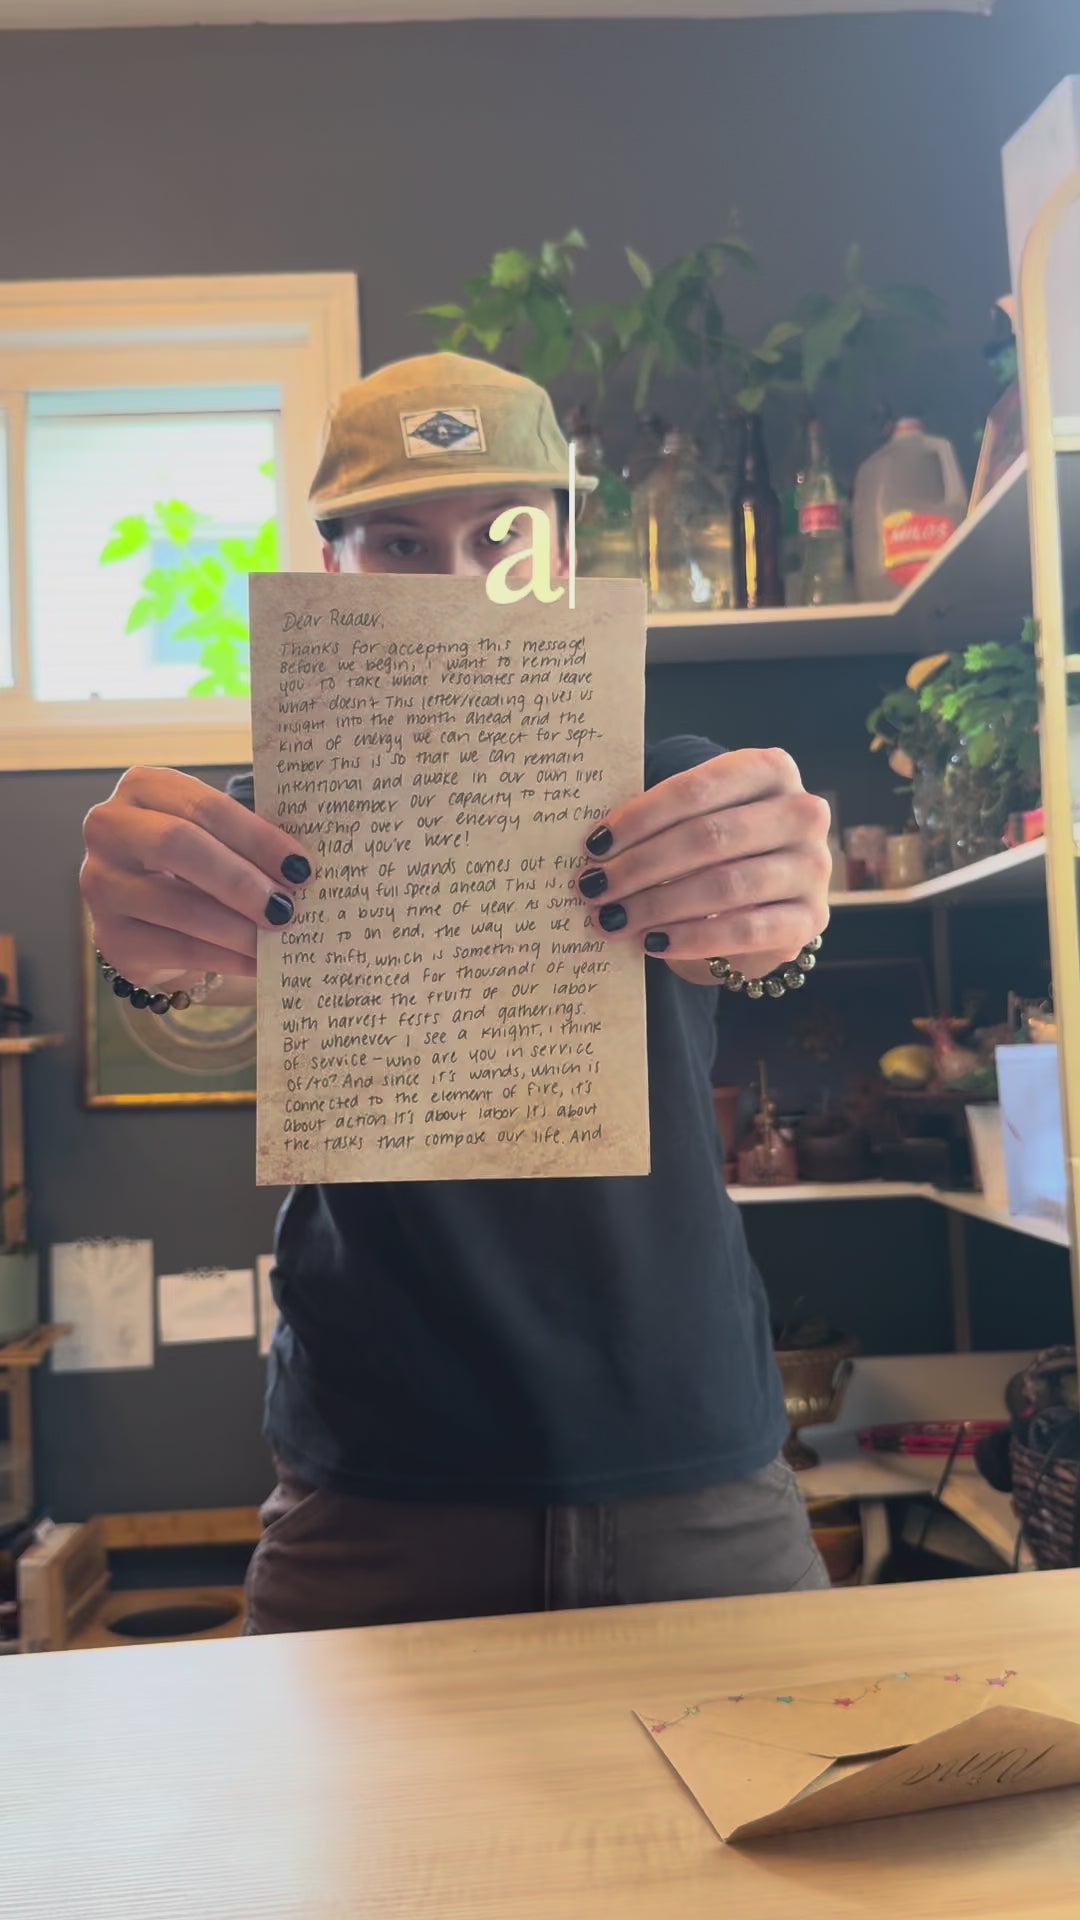 a
Dear Reader,
Thanks for accepting this message!
Before we begin, I want to remind
you to take what resonates and leave
what doesn't This letter/reading gives us
insight into the month ahead and the
kind of energy we can expect for Sept-
ember This is so that we can remain
intentional and awake in our own lives
and remember our capacity to take
ownership over our energy and
glad you're here!
knight of wands comes out first
already full speed ahead This is,
a busy time of year. As
comes to an end, the way we use
time shifts, which is something humans
have experienced for thousands of years
We celebrate the fruits of our labor
with harvest fests and gatherings.
But whenever I see a knight, I think
of service - who are you in service
of/to? And since it's wands, which is
connected to the element of fire, it's
about action It's about labor It's about
the tasks that compose our life. And
MILO'S